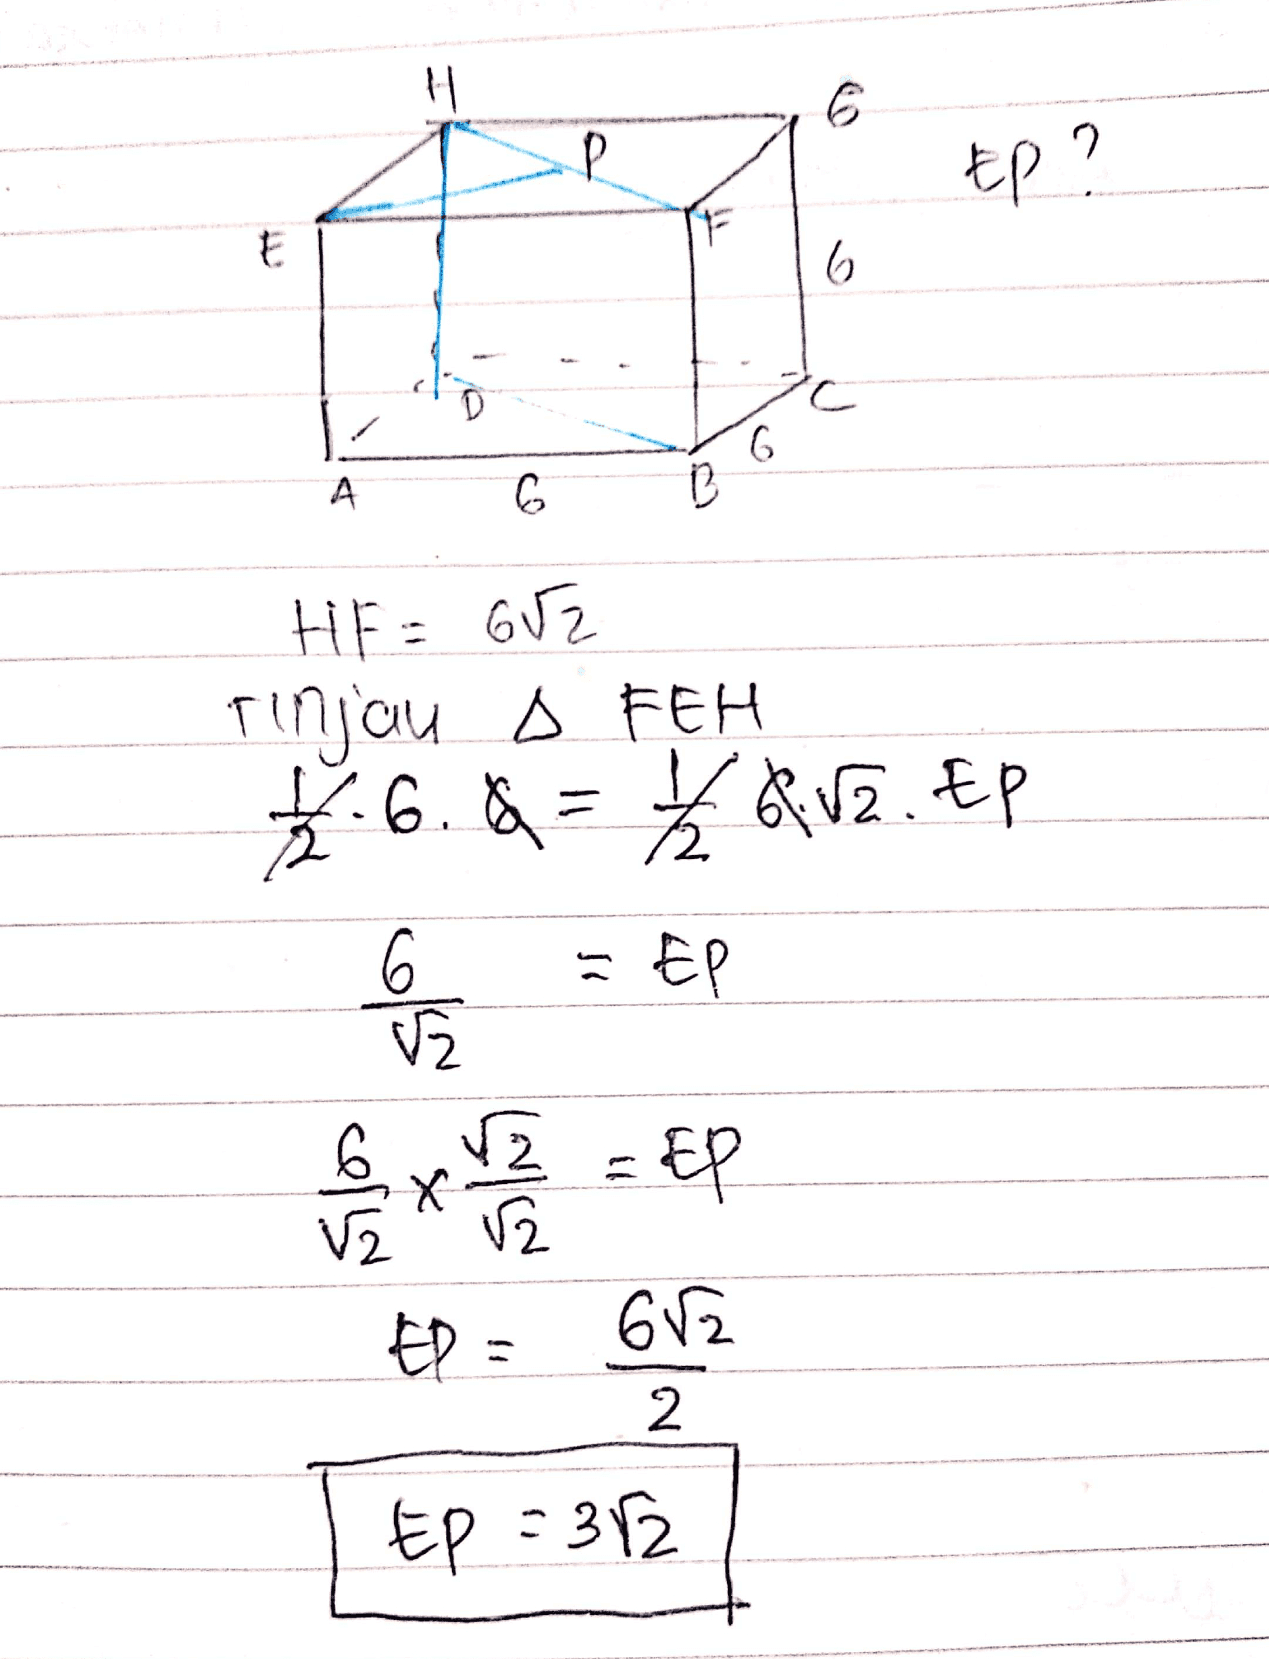 H
G
P
EP ?
E
F
6
D
C
6
A
6
B
HF = 6√2
Tinjau Δ FEH
1/2 . 6 . 6 = 1/2 6 . √2 . EP
6/√2 = EP
6/√2 x √2/√2 = EP
EP = 6√2/2
EP = 3√2